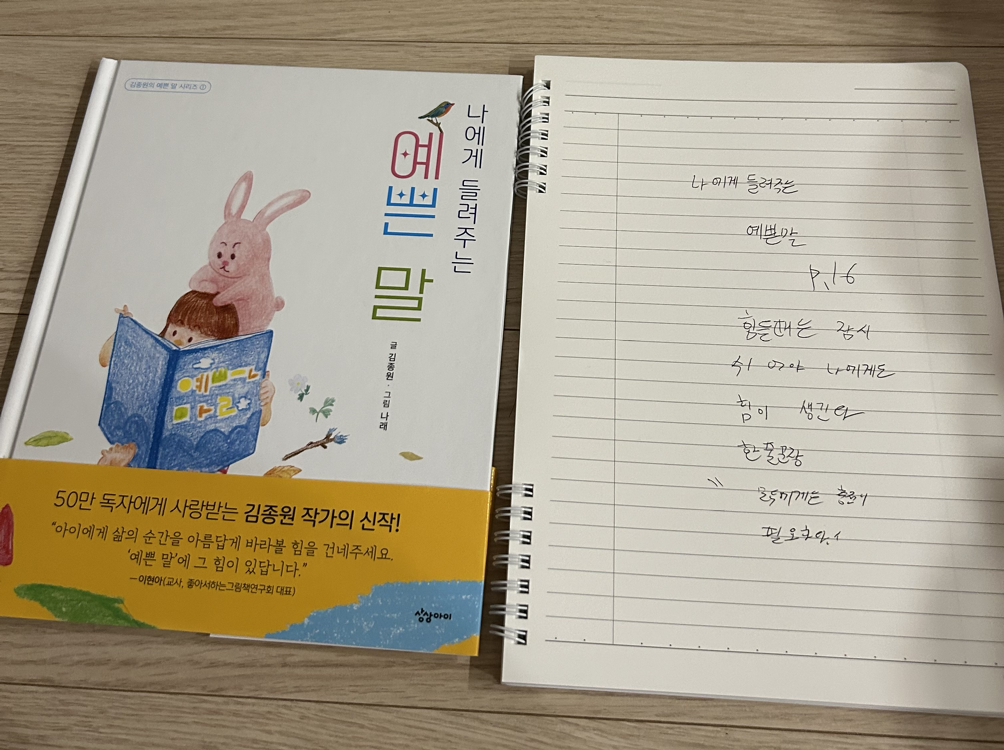 김종원의 예쁜 말 시리즈 ①
나에게 들려주는
예쁜
말
글 김종원 · 그림 나래
예쁘ㅡㄴ
마ㄹ
50만 독자에게 사랑받는 김종원 작가의 신작!
“아이에게 삶의 순간을 아름답게 바라볼 힘을 건네주세요.
‘예쁜 말’에 그 힘이 있답니다.”
—이현아(교사, 좋아서하는그림책연구회 대표)
상상아이
나에게 들려주는
예쁜말
p.16
힘들때는 잠시
쉬어야 나에게도
힘이 생긴다
한줄문장
필요하다